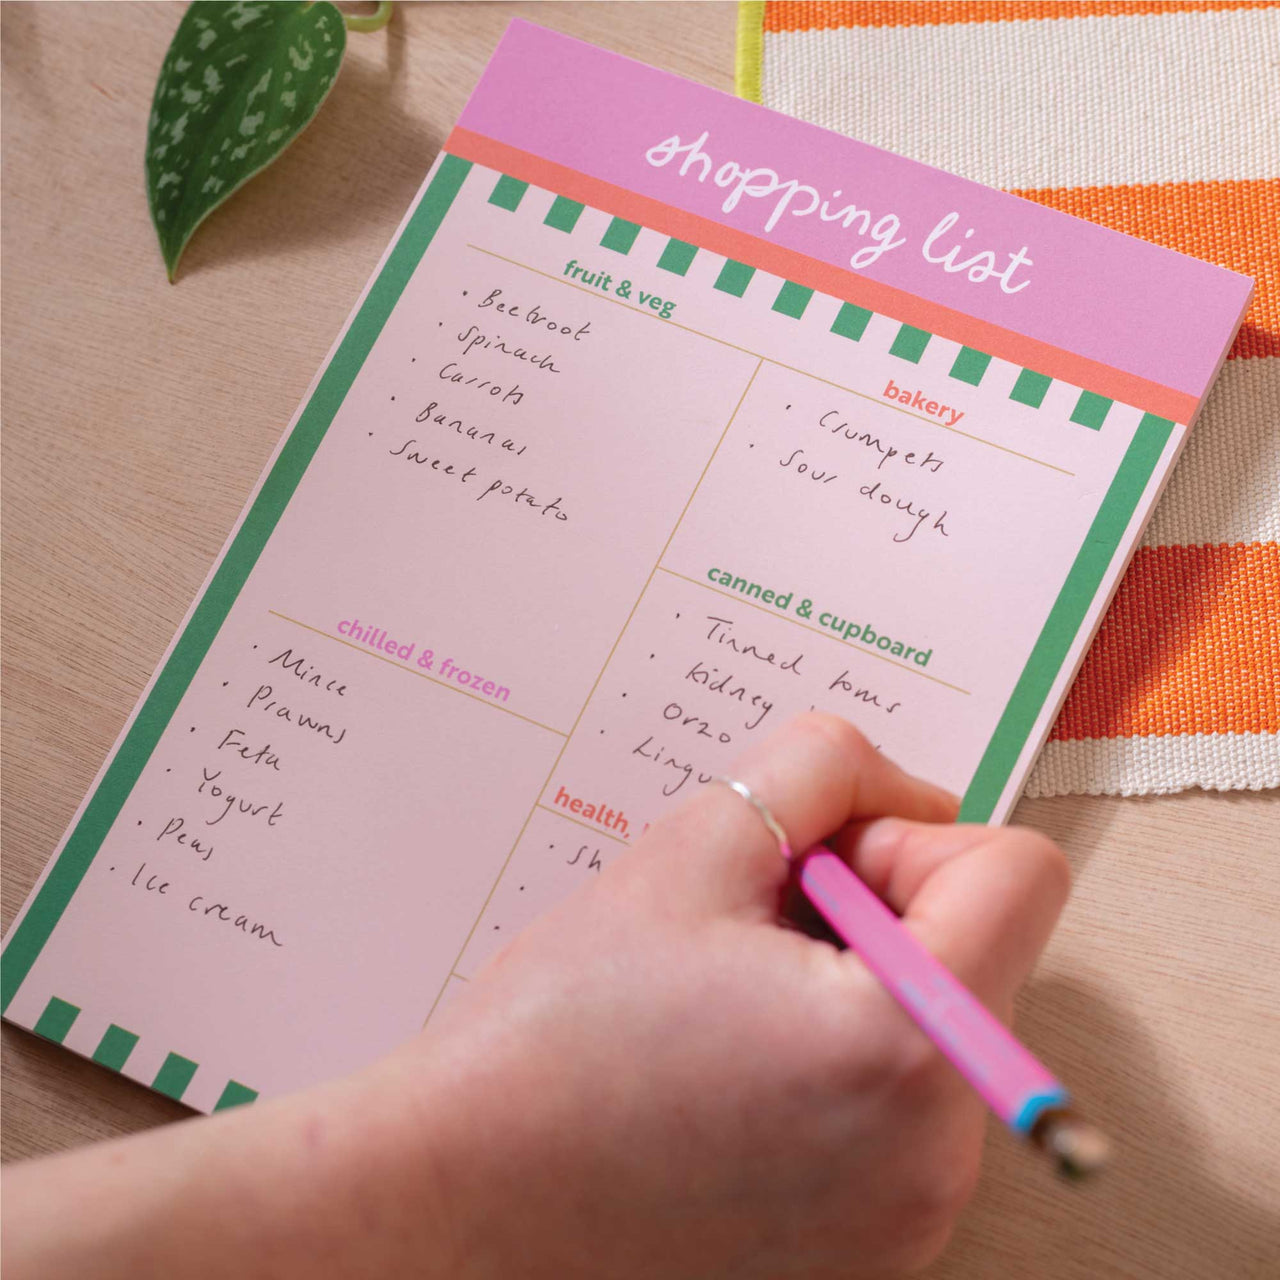 shopping list
fruit & veg
• Beetroot
• Spinach
• Carrots
• Bananas
• Sweet potato
bakery
• Crumpets
• Sour dough
canned & cupboard
• Tinned toms
• Kidney
• Orzo
• Lingu
chilled & frozen
• Mince
• Prawns
• Feta
• Yogurt
• Peas
• Ice cream
health,
• Sh
•
•